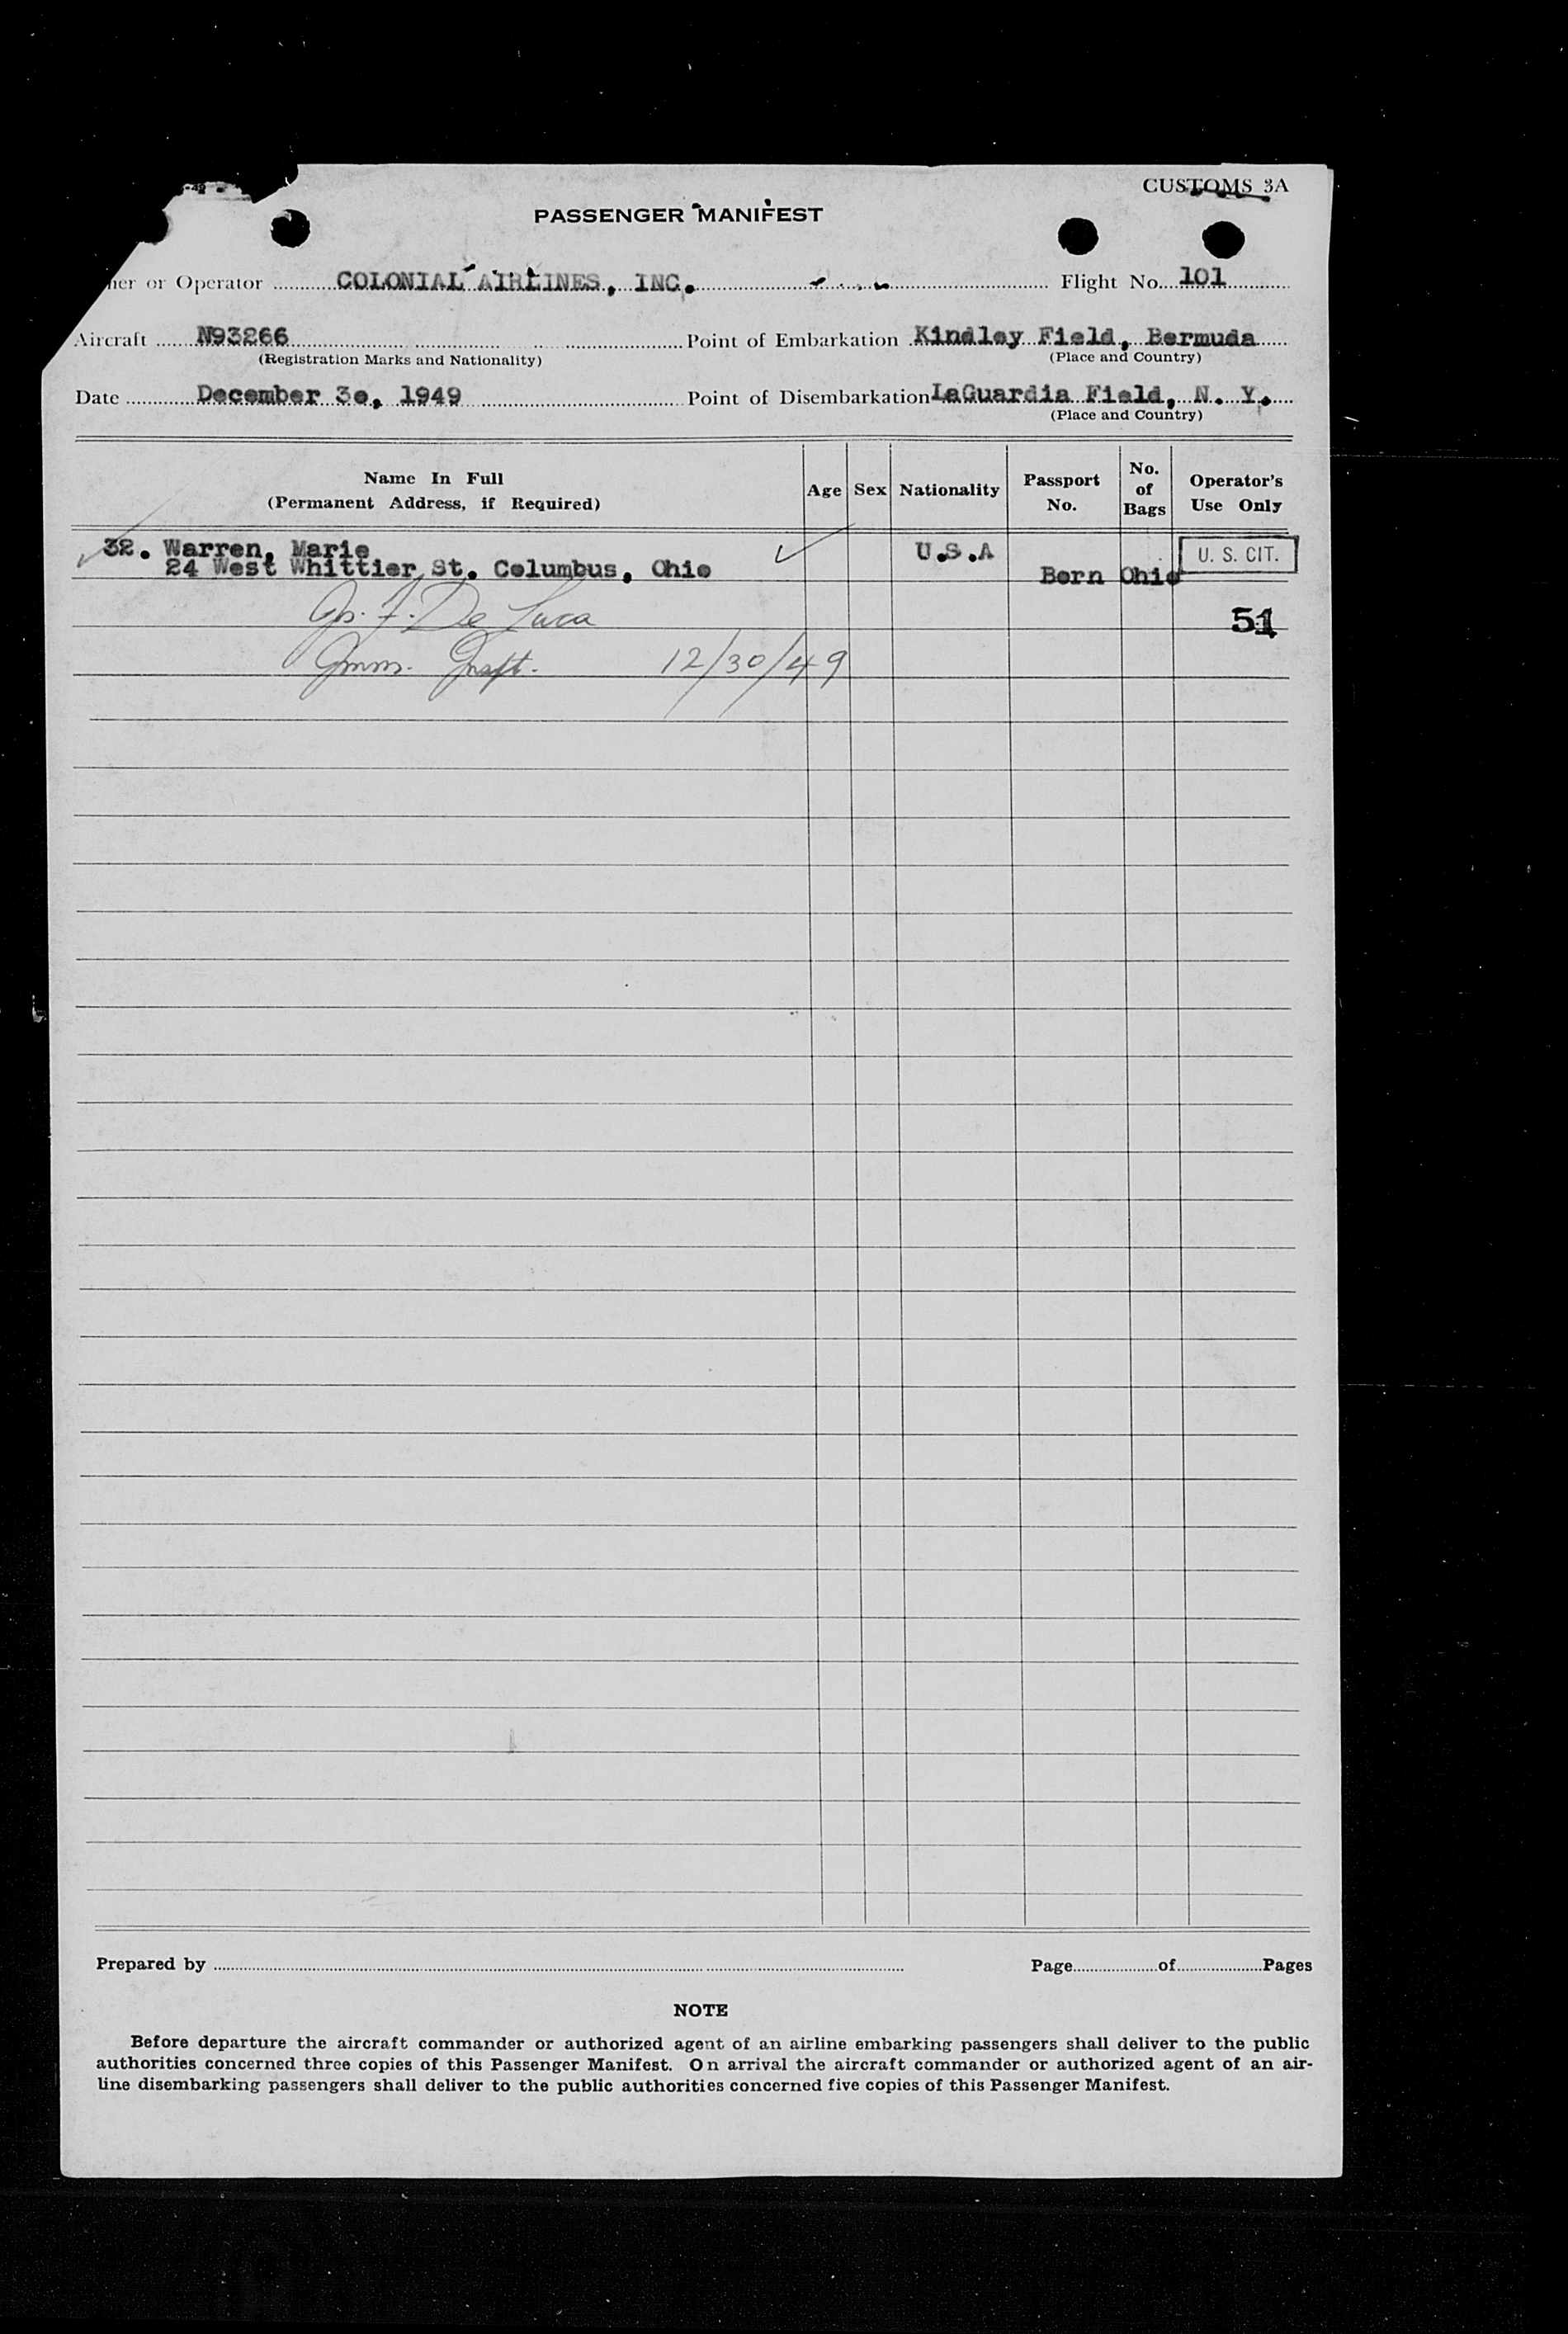 CUSTOMS 3A
PASSENGER MANIFEST
ner or Operator COLONIAL AIRLINES, INC. Flight No. 101
Aircraft N93266 Point of Embarkation Kindley Field, Bermuda
(Registration Marks and Nationality) (Place and Country)
Date December 3o, 1949 Point of Disembarkation LaGuardia Field, N. Y.
(Place and Country)
Name In Full
(Permanent Address, if Required)
Age
Sex
Nationality
Passport
No.
No.
of
Bags
Operator's
Use Only
32. Warren, Marie U.S.A U. S. CIT.
24 West Whittier St. Columbus, Ohio Born Ohio
De Luca 51
Imm. Inspt. 12/30/49
Prepared by Page of Pages
NOTE
Before departure the aircraft commander or authorized agent of an airline embarking passengers shall deliver to the public
authorities concerned three copies of this Passenger Manifest. On arrival the aircraft commander or authorized agent of an air-
line disembarking passengers shall deliver to the public authorities concerned five copies of this Passenger Manifest.